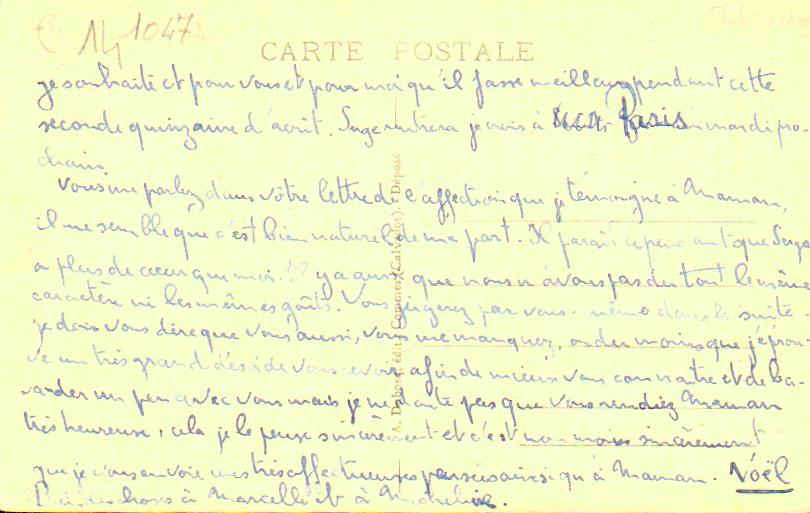 14 1047
Calvados
CARTE POSTALE
je souhaite et pour vous et pour moi qu'il fasse meilleur pendant cette
seconde quinzaine d'août. Serge rentrera je crois à Paris mardi pro-
chain.
Vous me parlez dans vôtre lettre de l'affection que je témoigne à Maman,
il me semble que c'est bien naturel de ma part. Il paraît cependant que Serge
a plus de cœur que moi !? y a aussi que nous n'avons pas du tout le même
caractère ni les mêmes goûts. Vous jugerez par vous-même dans la suite -
je dois vous dire que vous aussi, vous me manquez, ou du moins que j'éprou-
ve un très grand désir de vous revoir afin de mieux vous connaitre et de ba-
varder un peu avec vous mais je ne doute pas que vous rendiez Maman
très heureuse, cela je le pense sincèrement et c'est non moins sincèrement
que je vous envoie mes très affectueuses pensées ainsi qu'à Maman. Noël
Bien des choses à Marcelle et à Micheline.
A. Dubosq, édit., Commes (Calvados). - Déposé